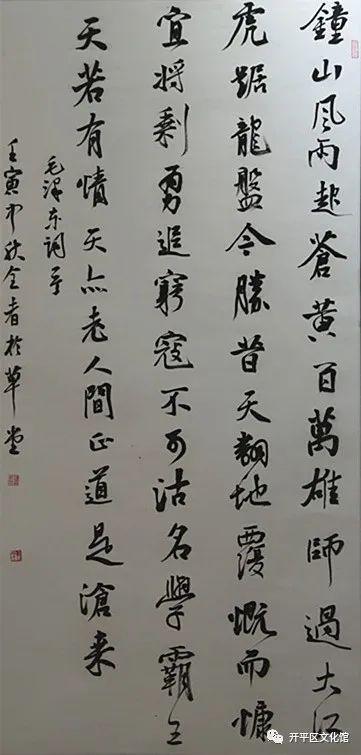 鐘山风雨起蒼黄百萬雄師過大江
虎踞龍盤今勝昔天翻地覆慨而慷
宜将剩勇追窮寇不可沽名學霸王
天若有情天亦老人間正道是滄桑
毛泽东词
壬寅中秋於草堂
开平区文化馆